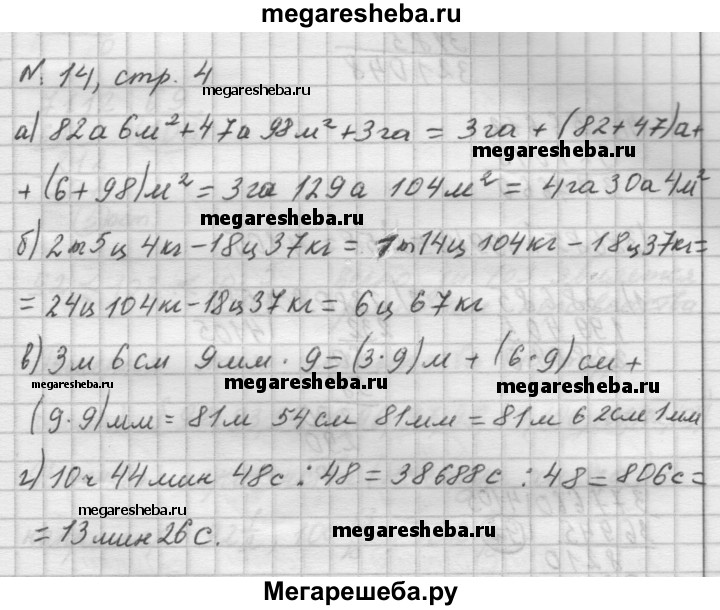 megaresheba.ru
N. 14, стр. 4
megaresheba.ru
а) 82а 6м²+47а 98м²+3га = 3га + (82+47)а+
megaresheba.ru
+ (6+98)м² = 3га 129а 104м² = 4га 30а 4м²
megaresheba.ru
б) 2т 5ц 4кг - 18ц 37кг = 1т 14ц 104кг - 18ц 37кг =
= 24ц 104кг - 18ц 37кг = 6ц 67кг
в) 3м 6см 9мм · 9 = (3·9)м + (6·9)см +
megaresheba.ru megaresheba.ru megaresheba.ru
(9·9)мм = 81м 54см 81мм = 81м 62см 1мм
г) 10ч 44мин 48с : 48 = 38688с : 48 = 806с =
megaresheba.ru
= 13мин 26с. megaresheba.ru
Мегарешеба.ру